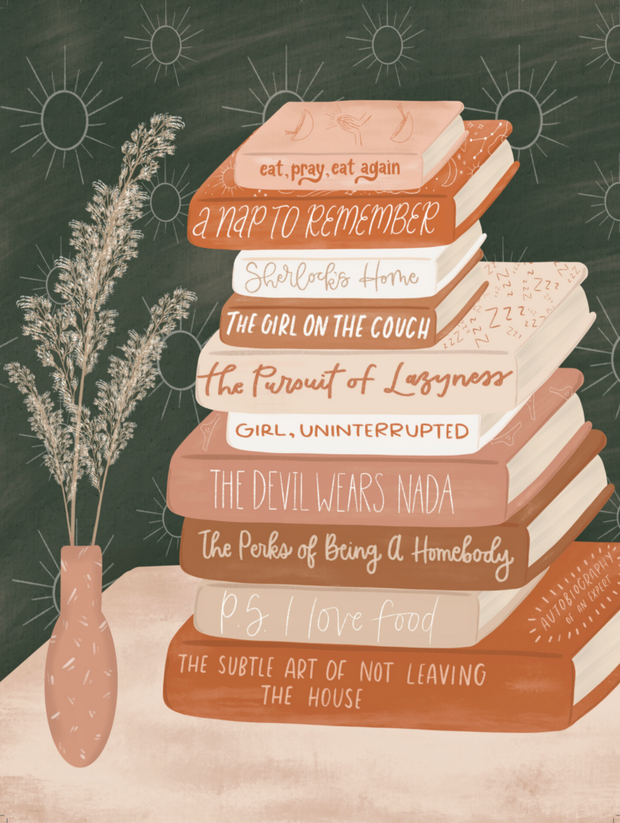 eat, pray, eat again
a nap to remember
Sherlock's Home
THE GIRL ON THE COUCH
the Pursuit of Lazyness
GIRL, UNINTERRUPTED
THE DEVIL WEARS NADA
The Perks of Being A Homebody
P.S. I love food
AUTOBIOGRAPHY
OF AN EXPERT
THE SUBTLE ART OF NOT LEAVING
THE HOUSE
Zzz